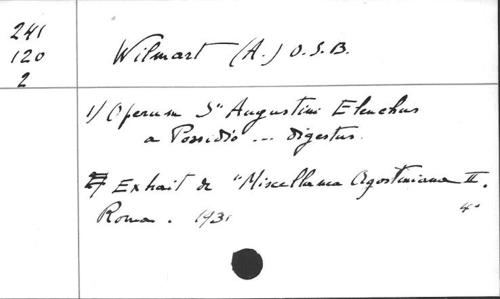 241
120
2
Wilmart (A.) O.S.B.
1/ Operum Sti Augustini Elenchus
a Possidio ... digestus.
Extrait de "Miscellanea Agostiniana II.
Roma. 1931
4°